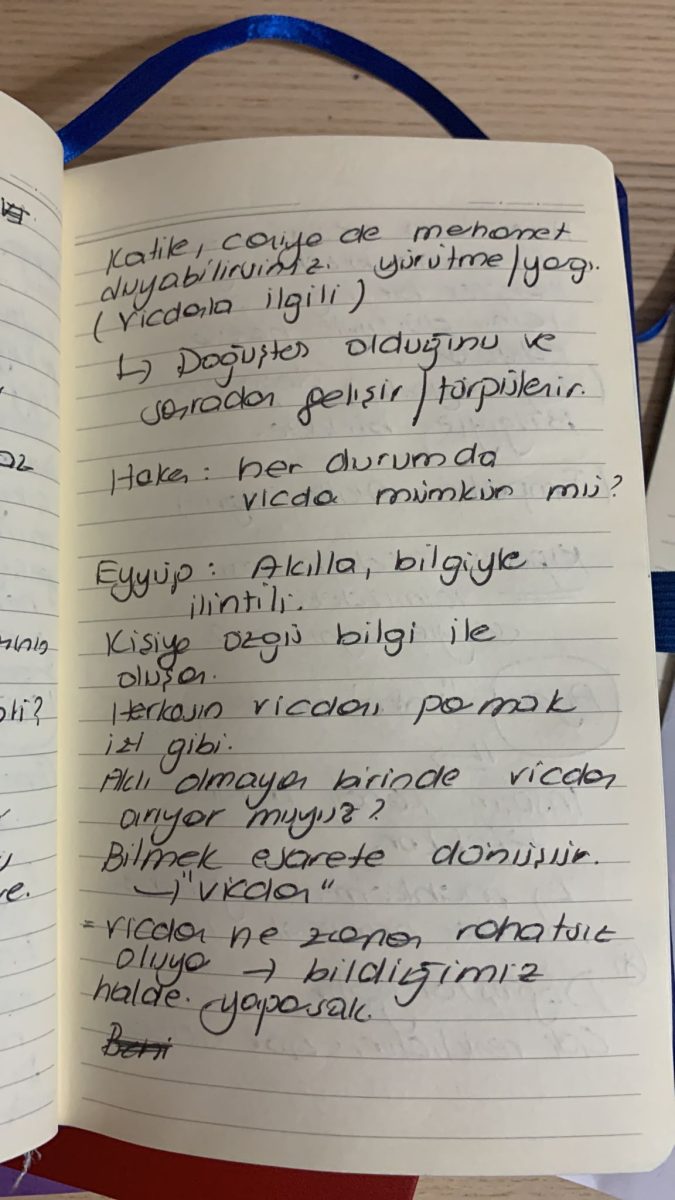 Katile, caniye de merhamet
duyabilirmiyiz. yürütme/yargı.
(Vicdanla ilgili)
↳ Doğuştan olduğunu ve
sonradan gelişir/törpülenir.
Hakan: her durumda
vicdan mümkün mü?
Eyyüp: Akılla, bilgiyle
ilintili.
Kişiye özgü bilgi ile
oluşan.
Herkesin vicdanı parmak
izi gibi.
Aklı olmayan birinde vicdan
arıyor muyuz?
Bilmek esarete dönüşür.
→ "vicdan"
= vicdan ne zaman rahatsız
oluyo → bildiğimiz
halde yaparsak.